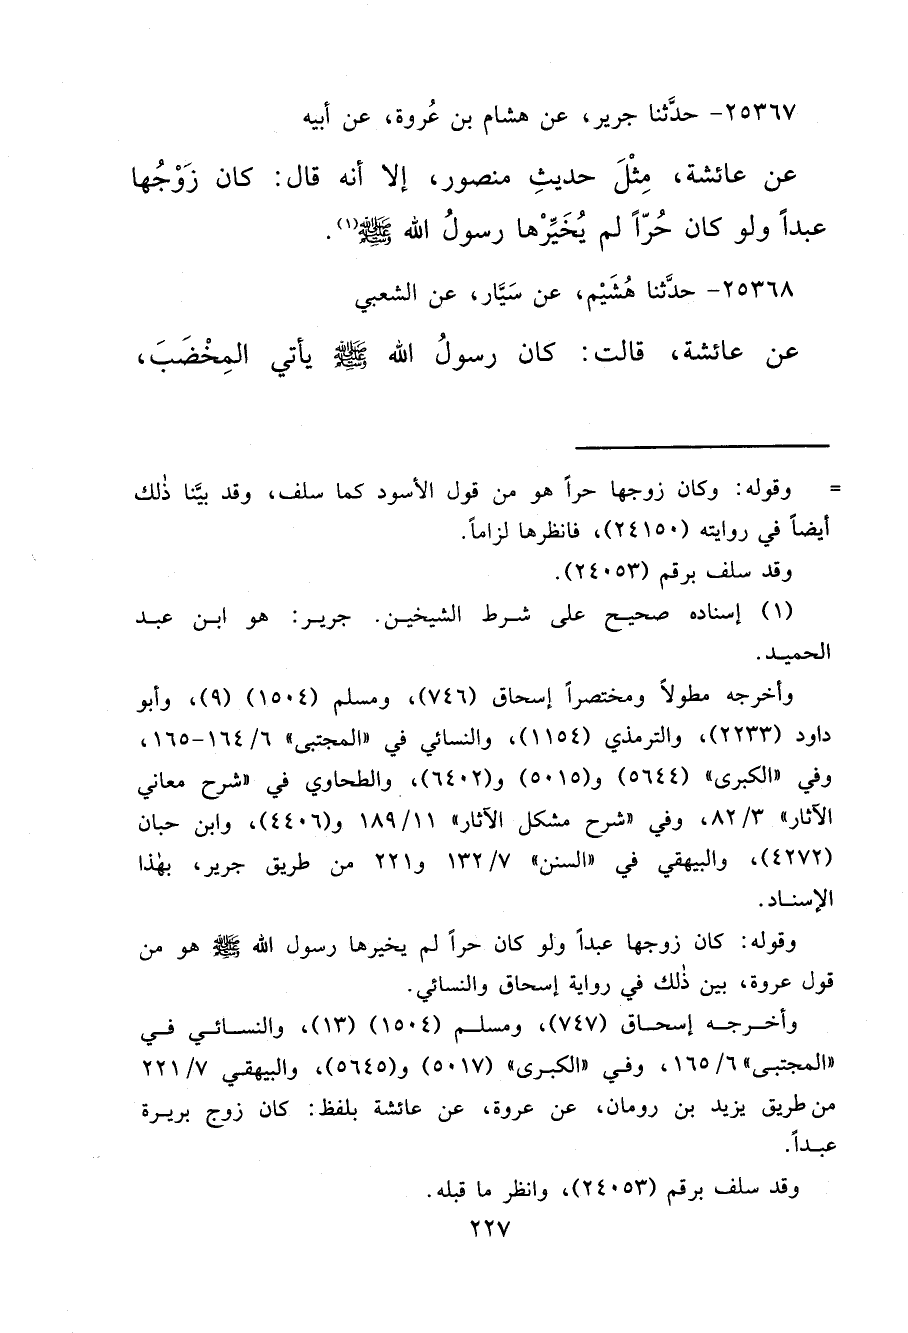 ٢٥٣٦٧- حدَّثنا جرير، عن هشام بن عُروة، عن أبيه
عن عائشة، مِثْلَ حديثِ منصور، إلا أنه قال: كان زَوْجُها
عبداً ولو كان حُرّاً لم يُخَيِّرْها رسولُ الله ﷺ(١).
٢٥٣٦٨- حدَّثنا هُشَيْم، عن سَيَّار، عن الشعبي
عن عائشة، قالت: كان رسولُ الله ﷺ يأتي المِخْضَبَ،
= وقوله: وكان زوجها حراً هو من قول الأسود كما سلف، وقد بيَّنا ذٰلك
أيضاً في روايته (٢٤١٥٠)، فانظرها لزاماً.
وقد سلف برقم (٢٤٠٥٣).
(١) إسناده صحيح على شرط الشيخين. جرير: هو ابن عبد
الحميد.
وأخرجه مطولاً ومختصراً إسحاق (٧٤٦)، ومسلم (١٥٠٤) (٩)، وأبو
داود (٢٢٣٣)، والترمذي (١١٥٤)، والنسائي في «المجتبى» ٦/ ١٦٤-١٦٥،
وفي «الكبرى» (٥٦٤٤) و(٥٠١٥) و(٦٤٠٢)، والطحاوي في «شرح معاني
الآثار» ٣/ ٨٢، وفي «شرح مشكل الآثار» ١١/ ١٨٩ و(٤٤٠٦)، وابن حبان
(٤٢٧٢)، والبيهقي في «السنن» ٧/ ١٣٢ و٢٢١ من طريق جرير، بهٰذا
الإسناد.
وقوله: كان زوجها عبداً ولو كان حراً لم يخيرها رسول الله ﷺ هو من
قول عروة، بين ذٰلك في رواية إسحاق والنسائي.
وأخرجه إسحاق (٧٤٧)، ومسلم (١٥٠٤) (١٣)، والنسائي في
«المجتبى» ٦/ ١٦٥، وفي «الكبرى» (٥٠١٧) و(٥٦٤٥)، والبيهقي ٧/ ٢٢١
من طريق يزيد بن رومان، عن عروة، عن عائشة بلفظ: كان زوج بريرة
عبداً.
وقد سلف برقم (٢٤٠٥٣)، وانظر ما قبله.
٢٢٧